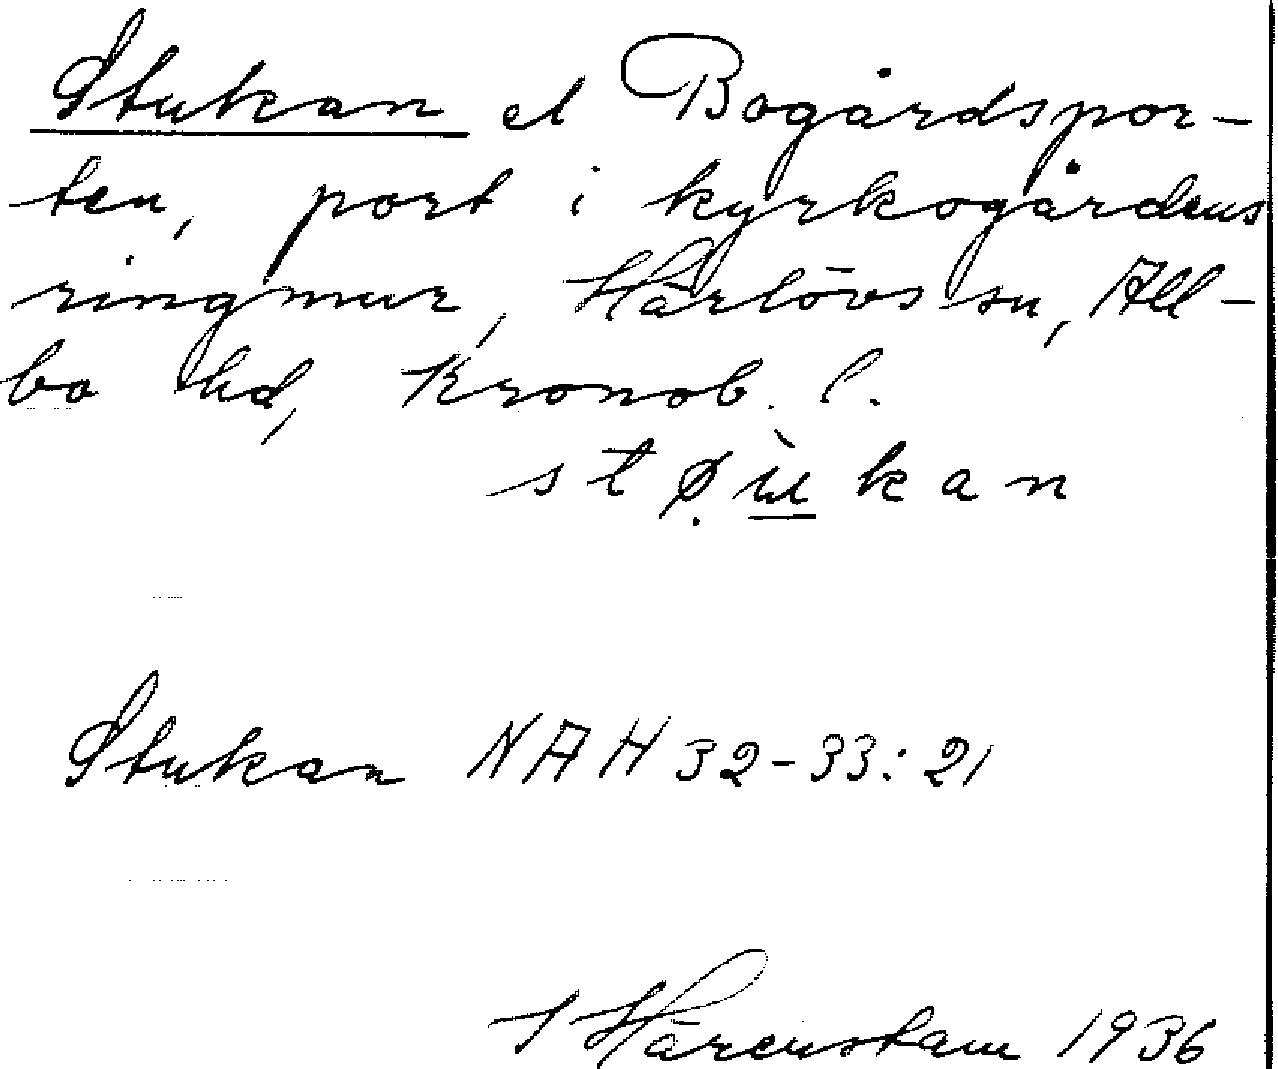 Stukan el Bogårdspor-
ten, port i kyrkogårdens
ringmur, Härlövs sn, All-
bo hd, Kronob. l.
stø̣ùkan
Stukan NAH 32-33:21
I Härenstam 1936